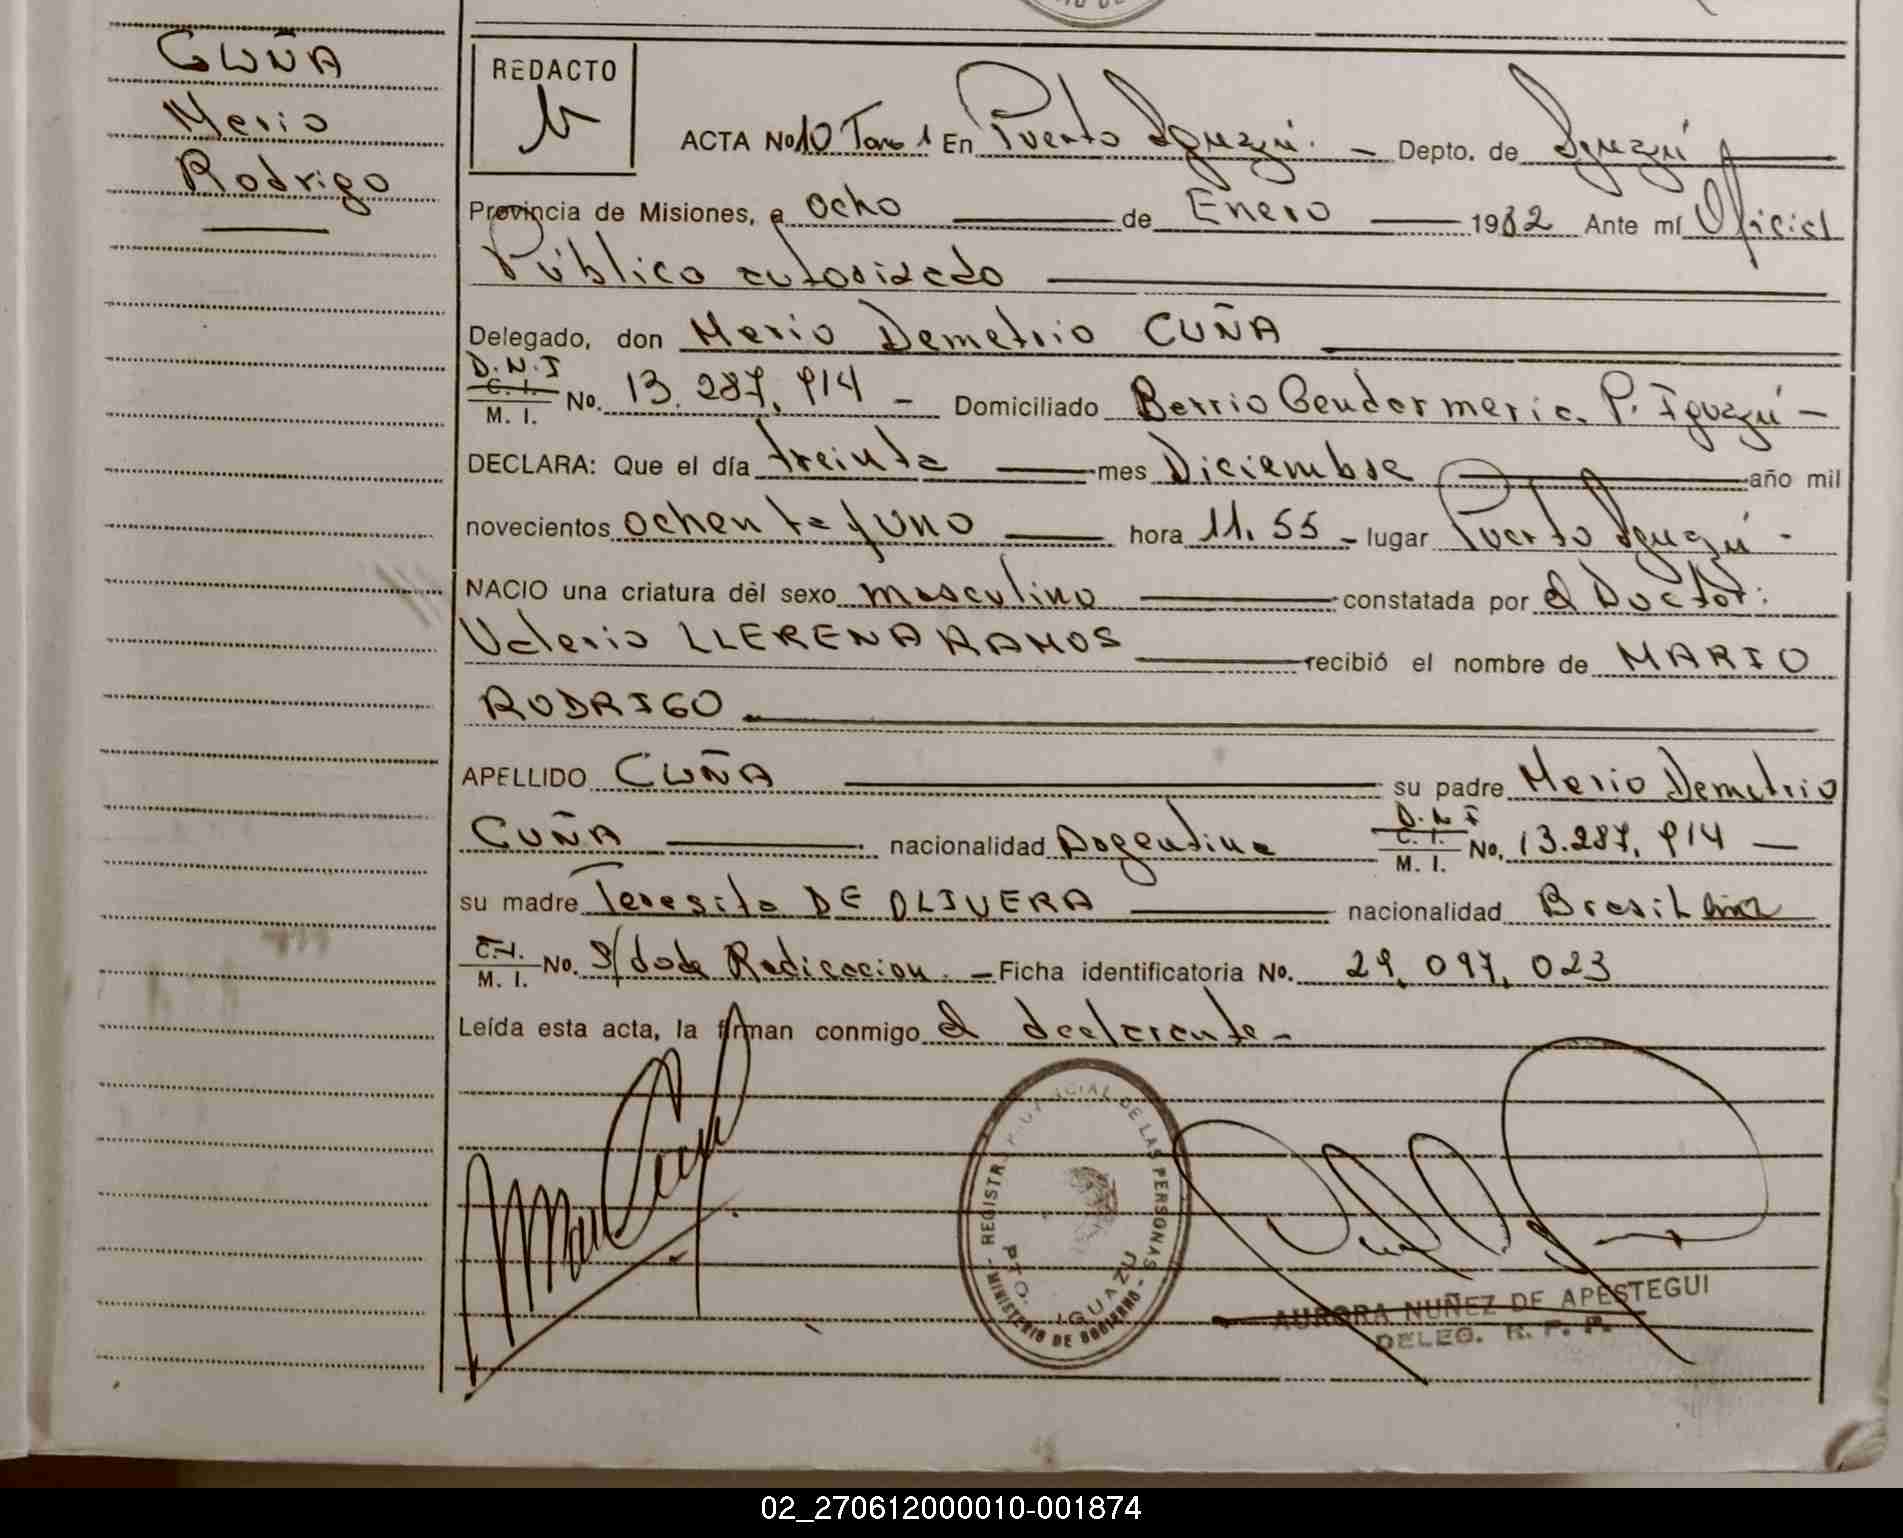 CUÑA
Mario
Rodrigo
REDACTO
ACTA No 10 Tomo 1 En Puerto Iguazú. - Depto. de Iguazú
Provincia de Misiones, a ocho de Enero 1982 Ante mí Oficial
Público autorizado
Delegado, don Mario Demetrio CUÑA
D.N.I
C. I.
M. I. No. 13.287.914 - Domiciliado Barrio Gendarmeria. P. Iguazú -
DECLARA: Que el día treinta mes Diciembre año mil
novecientos ochenta y uno hora 11.55 - lugar Puerto Iguazú -
NACIO una criatura del sexo masculino constatada por el Doctor:
Valerio LLERENA RAMOS recibió el nombre de MARIO
RODRIGO
APELLIDO CUÑA su padre Mario Demetrio
CUÑA nacionalidad Argentina D.N.I C. I. M. I. No. 13.287.914 -
su madre Teresita DE OLIVERA nacionalidad Brasileña
C.I. M. I. No. S/ doc Radicacion. - Ficha identificatoria No. 29.097.023
Leída esta acta, la firman conmigo el declarante -
REGISTRO PROVINCIAL DE LAS PERSONAS
MINISTERIO DE GOBIERNO
PTO. IGUAZU
AURORA NUÑEZ DE APESTEGUI
DELEG. R. P. P.
02_270612000010-001874